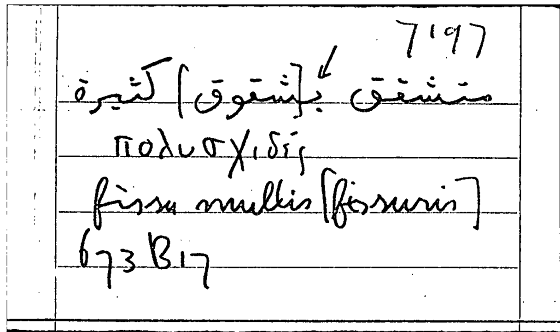 7197
متشقق بـ[شقوق] كثيرة
πολυσχιδές
fissu multis [fissuris]
673 B 17